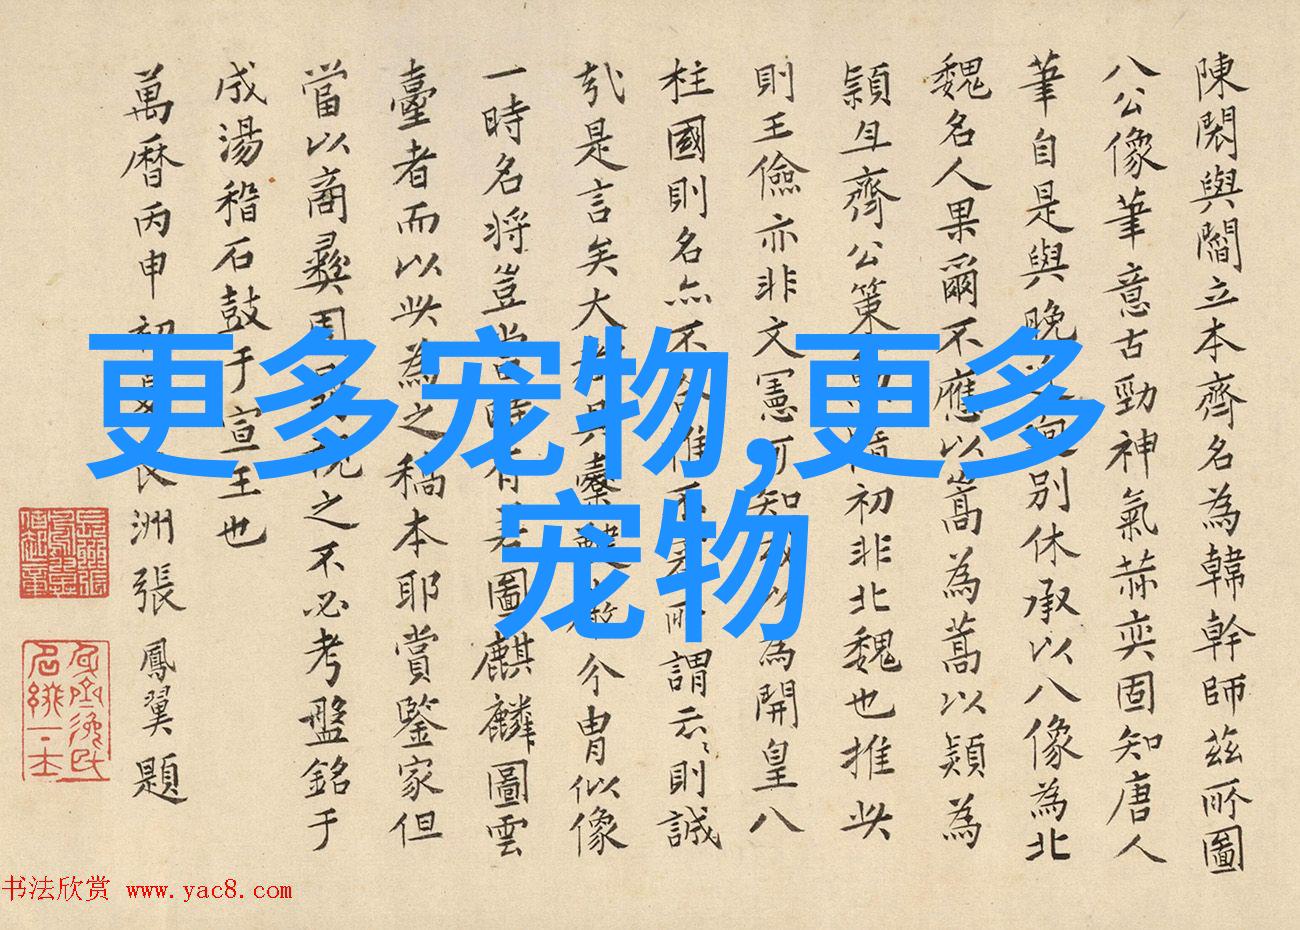 陳閎與閻立本齊名為韓幹師茲所圖
八公像筆意古勁神氣赫奕固知唐人
筆自是與晚別休承以八像為北
魏名人果爾不應以嵩為蒿以潁為
潁且齊公策初非北魏也推此
則王儉亦非文憲可知為開皇八
柱國則名亦不所謂云云則誠
哉是言矣大介胄似像
一時名将豈當時有圖麒麟圖雲
臺者而以此為之稿本耶賞鑒家但
當以商彝周之不必考盤銘于
成湯稽石鼓于宣王也
萬曆丙申初長洲張鳳翼題
更多宠物,更多
宠物
书法欣赏 www.yac8.com